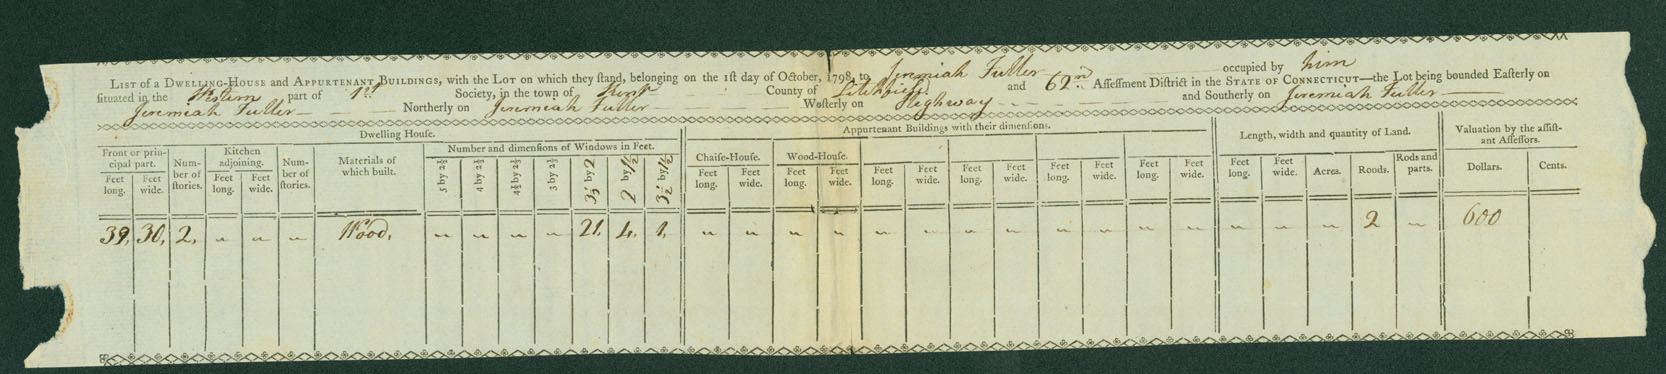 LIST of a DWELLING-HOUSE and APPURTENANT BUILDINGS, with the LOT on which they ſtand, belonging on the 1ſt day of October, 1798, to Jeremiah Fuller occupied by him
ſituated in the Western part of 1st Society, in the town of Kent County of Litchfield and 62nd Aſſeſſment Diſtrict in the STATE OF CONNECTICUT—the Lot being bounded Eaſterly on
Jeremiah Fuller Northerly on Jeremiah Fuller Weſterly on Highway and Southerly on Jeremiah Fuller
Dwelling Houſe. Appurtenant Buildings with their dimenſions. Length, width and quantity of Land. Valuation by the aſſiſt-
ant Aſſeſſors.
Front or prin-
cipal part. Num-
ber of
ſtories. Kitchen
adjoining. Num-
ber of
ſtories. Materials of
which built. Number and dimenſions of Windows in Feet. Chaiſe-Houſe. Wood-Houſe.
Feet
long. Feet
wide. Feet
long. Feet
wide. 5 by 2½ 4 by 2½ 4½ by 2½ 3 by 2½ 3½ by 2 2 by 1/2 3½ by 1/2 Feet
long. Feet
wide. Feet
long. Feet
wide. Feet
long. Feet
wide. Feet
long. Feet
wide. Feet
long. Feet
wide. Feet
long. Feet
wide. Feet
long. Feet
wide. Acres. Roods. Rods and
parts. Dollars. Cents.
39, 30, 2, " " " Wood, " " " " 21, 4, 1, " " " " " " " " " " " " " " " 2 " 600